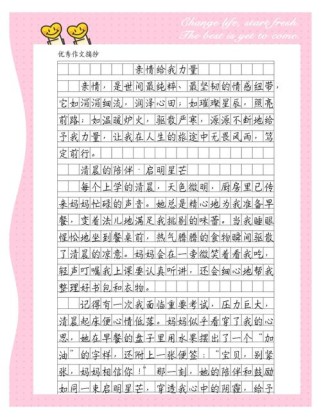 Change life, start fresh.
The best is yet to come.
优秀作文摘抄
亲情给我力量
亲情，是世间最纯粹、最坚韧的情感纽带，
它如涓涓细流，润泽心田；如璀璨星辰，照亮
前路；如温暖炉火，驱散严寒，源源不断地给
予我力量，让我在人生的旅途中无畏风雨，笃
定前行。
清晨的陪伴·启明星芒
每个上学的清晨，天色微明，厨房里已传
来妈妈忙碌的声音。她总是精心地为我准备早
餐，变着法儿地满足我挑剔的味蕾。当我睡眼
惺忪地坐到餐桌前，热气腾腾的食物瞬间驱散
了清晨的凉意。妈妈会在一旁微笑着看我吃，
轻声叮嘱我上课要认真听讲，还会细心地帮我
整理好书包和衣物。
记得有一次我面临重要考试，压力巨大，
清晨起床便心情低落。妈妈似乎看穿了我的心
思，她在早餐的盘子里用水果摆出了一个“加
油”的字样，还附上一张便签：“宝贝，别紧
张，妈妈相信你！”那一刻，她的陪伴和鼓励
如同一束启明星芒，穿透我心中的阴霾，给予